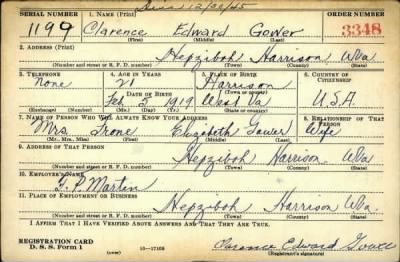 Diss 12/30/45
SERIAL NUMBER 1. NAME (Print) ORDER NUMBER
1199 Clarence Edward Gower 3348
(First) (Middle) (Last)
2. ADDRESS (Print)
Hepziboh Harrison WVa
(Number and street or R. F. D. number) (Town) (County) (State)
3. TELEPHONE 4. AGE IN YEARS 5. PLACE OF BIRTH 6. COUNTRY OF CITIZENSHIP
None 21 Harrison
DATE OF BIRTH (Town or county)
Feb 5 1919 West Va U.S.A.
(Exchange) (Number) (Mo.) (Day) (Yr.) (State or country)
7. NAME OF PERSON WHO WILL ALWAYS KNOW YOUR ADDRESS 8. RELATIONSHIP OF THAT PERSON
Mrs. Irone Elizabeth Gower Wife
(Mr., Mrs., Miss) (First) (Middle) (Last)
9. ADDRESS OF THAT PERSON
Hepziboh Harrison WVa
(Number and street or R. F. D. number) (Town) (County) (State)
10. EMPLOYER'S NAME
G. P. Martin
11. PLACE OF EMPLOYMENT OR BUSINESS
Hepziboh Harrison WVa.
(Number and street or R. F. D. number) (Town) (County) (State)
I AFFIRM THAT I HAVE VERIFIED ABOVE ANSWERS AND THAT THEY ARE TRUE.
REGISTRATION CARD
D. S. S. Form 1 (over) 16-17105 Clarence Edward Gower
(Registrant's signature)